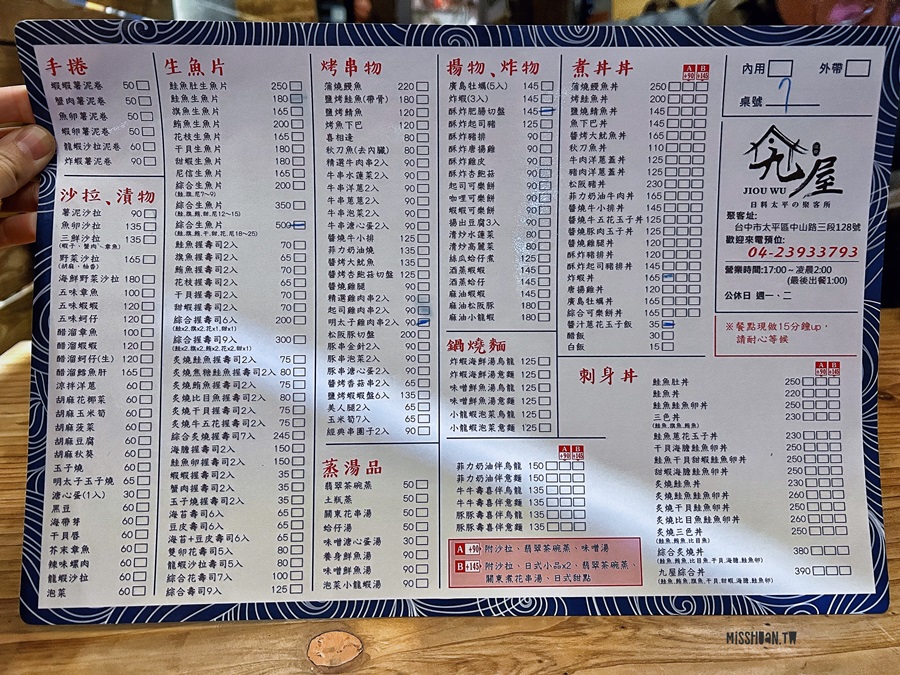 手捲
蝦蝦薯泥卷 50
蟹肉薯泥卷 50
魚卵薯泥卷 50
蝦卵薯泥卷 50
龍蝦沙拉泥卷 60
炸蝦薯泥卷 90
沙拉、漬物
薯泥沙拉 90
魚卵沙拉 135
三鮮沙拉 135
(蝦仁、蟹肉、章魚)
野菜沙拉 165
(胡麻、柚香)
海鮮野菜沙拉 180
五味章魚 100
五味蝦蝦 120
五味蚵仔 120
醋溜章魚 100
醋溜蝦蝦 120
醋溜蚵仔(生) 120
醋溜鱈魚肝 165
涼拌洋蔥 60
胡麻花椰菜 60
胡麻玉米筍 60
胡麻菠菜 60
胡麻豆腐 60
胡麻秋葵 60
玉子燒 60
明太子玉子燒 65
溏心蛋(1入) 30
黑豆 60
海帶芽 60
干貝唇 60
芥末章魚 60
辣味螺肉 60
龍蝦沙拉 60
泡菜 60
生魚片
鮭魚肚生魚片 250
鮭魚生魚片 180
旗魚生魚片 165
鮪魚生魚片 200
花枝生魚片 165
干貝生魚片 180
甜蝦生魚片 180
尼信生魚片 165
綜合生魚片 200
(鮭,旗,尼7~9)
綜合生魚片 350
(鮭,旗,鮪,甜,尼12~15)
綜合生魚片 500
(鮭,旗,鮪,干,甜,花,尼18~25)
鮭魚握壽司2入 70
旗魚握壽司2入 65
鮪魚握壽司2入 70
花枝握壽司2入 65
干貝握壽司2入 70
甜蝦握壽司2入 70
綜合握壽司6入 200
(鮭x2,旗x2,花x1,甜x1)
綜合握壽司9入 300
(鮭x2,旗x2,鮪x2,花x2,甜x1)
炙燒鮭魚握壽司2入 75
炙燒焦糖鮭魚握壽司2入 80
炙燒鮪魚握壽司2入 75
炙燒比目魚握壽司2入 80
炙燒干貝握壽司2入 75
炙燒牛五花握壽司2入 75
綜合炙燒握壽司7入 245
海膽握壽司2入 150
鮭魚卵握壽司2入 150
蝦蝦握壽司2入 35
蟹肉握壽司2入 35
玉子燒握壽司2入 35
海苔壽司6入 65
豆皮壽司6入 65
海苔+豆皮壽司6入 65
雙卵花壽司5入 80
龍蝦沙拉壽司5入 80
綜合花壽司7入 100
綜合壽司9入 125
烤串物
蒲燒鰻魚 220
鹽烤鮭魚(帶骨) 180
鹽烤鯖魚 120
烤魚下巴 120
喜相逢 80
秋刀魚(去內臟) 80
精選牛肉串2入 90
牛串水蓮菜2入 90
牛串泡菜2入 90
牛串蔥蔥2入 90
牛串洋蔥2入 90
牛串溏心蛋2入 90
醬燒牛小排 125
菲力奶油燒 135
醬燒大魷魚 135
醬烤杏鮑菇切盤 125
醬燒雞腿 120
精選雞肉串2入 90
起司雞肉串2入 90
明太子雞肉串2入 90
松阪豚切盤 200
豚串金針2入 90
豚串泡菜2入 90
豚串溏心蛋2入 90
醬烤香菇串2入 65
鹽烤蝦蝦盤6入 135
美人腿2入 65
玉米筍7入 65
經典串團子2入 90
蒸湯品
翡翠茶碗蒸 50
土瓶蒸 50
關東花串湯 50
蛤仔湯 50
味噌溏心蛋湯 30
養身鮮魚湯 90
味噌鮮魚湯 90
泡菜小龍蝦湯 90
揚物、炸物
廣島牡蠣(5入) 145
炸蝦(3入) 145
酥炸肥腸切盤 145
酥炸起司豬 125
酥炸豬排 90
酥炸唐揚雞 90
酥炸雞皮 90
酥炸杏鮑菇 90
起司可樂餅 90
咖哩可樂餅 90
蝦蝦可樂餅 90
揚出豆腐3入 90
清炒水蓮菜 80
清炒高麗菜 80
絲瓜蛤仔煮 125
酒蒸蝦蝦 145
酒蒸蛤仔 145
麻油蝦蝦 145
麻油松阪豚 180
麻油小龍蝦 180
鍋燒麵
炸蝦海鮮湯烏龍 125
炸蝦海鮮湯意麵 125
味噌鮮魚湯烏龍 125
味噌鮮魚湯意麵 125
小龍蝦泡菜烏龍 125
小龍蝦泡菜意麵 125
A +90 B +145
菲力奶油伴烏龍 150
菲力奶油伴意麵 150
牛牛壽喜伴烏龍 135
牛牛壽喜伴意麵 135
豚豚壽喜伴烏龍 135
豚豚壽喜伴意麵 135
A +90 附沙拉、翡翠茶碗蒸、味噌湯
B +145 附沙拉、日式小品x2、翡翠茶碗蒸、
關東煮花串湯、日式甜點
煮丼丼
A +90 B +145
蒲燒鰻魚丼 250
鹽烤鮭魚丼 200
鹽燒鯖魚丼 145
魚下巴丼 145
醬烤大魷魚丼 165
秋刀魚丼 110
牛肉洋蔥蓋丼 125
豬肉洋蔥蓋丼 125
松阪豬丼 230
菲力奶油牛肉丼 165
醬燒牛小排丼 145
醬燒牛五花玉子丼 125
醬燒豚肉玉子丼 125
醬燒雞腿丼 120
酥炸豬排丼 120
酥炸起司豬排丼 145
炸蝦丼 165
唐揚雞丼 120
廣島牡蠣丼 165
綜合可樂餅丼 165
醬汁蔥花玉子飯 35
醋飯 30
白飯 15
刺身丼
A +90 B +145
鮭魚肚丼 250
鮭魚丼 220
鮭魚鮭魚卵丼 250
三色丼 230
(鮭魚,旗魚,鮪魚)
鮭魚蔥花玉子丼 230
干貝海膽鮭魚卵丼 250
鮭魚干貝甜蝦鮭魚卵丼 250
甜蝦海膽鮭魚卵丼 250
炙燒鮭魚丼 230
炙燒鮭魚鮭魚卵丼 260
炙燒干貝鮭魚卵丼 250
炙燒比目魚鮭魚卵丼 260
炙燒三色丼 250
(鮭魚,鮪魚,比目魚)
綜合炙燒丼 380
(鮭魚,鮪魚,旗魚,比目魚,干貝,海膽,鮭魚卵)
九屋綜合丼 390
(鮭魚,鮪魚,旗魚,干貝,甜蝦,海膽,鮭魚卵)
內用 外帶
桌號 7
九屋
JIOU WU
日料太平の聚客所
聚客址:
台中市太平區中山路三段128號
歡迎來電預位:
04-23933793
營業時間:17:00~凌晨2:00
(最後出餐1:00)
公休日 週一、二
※餐點現做15分鐘up,
請耐心等候
MISSHUAN.TW